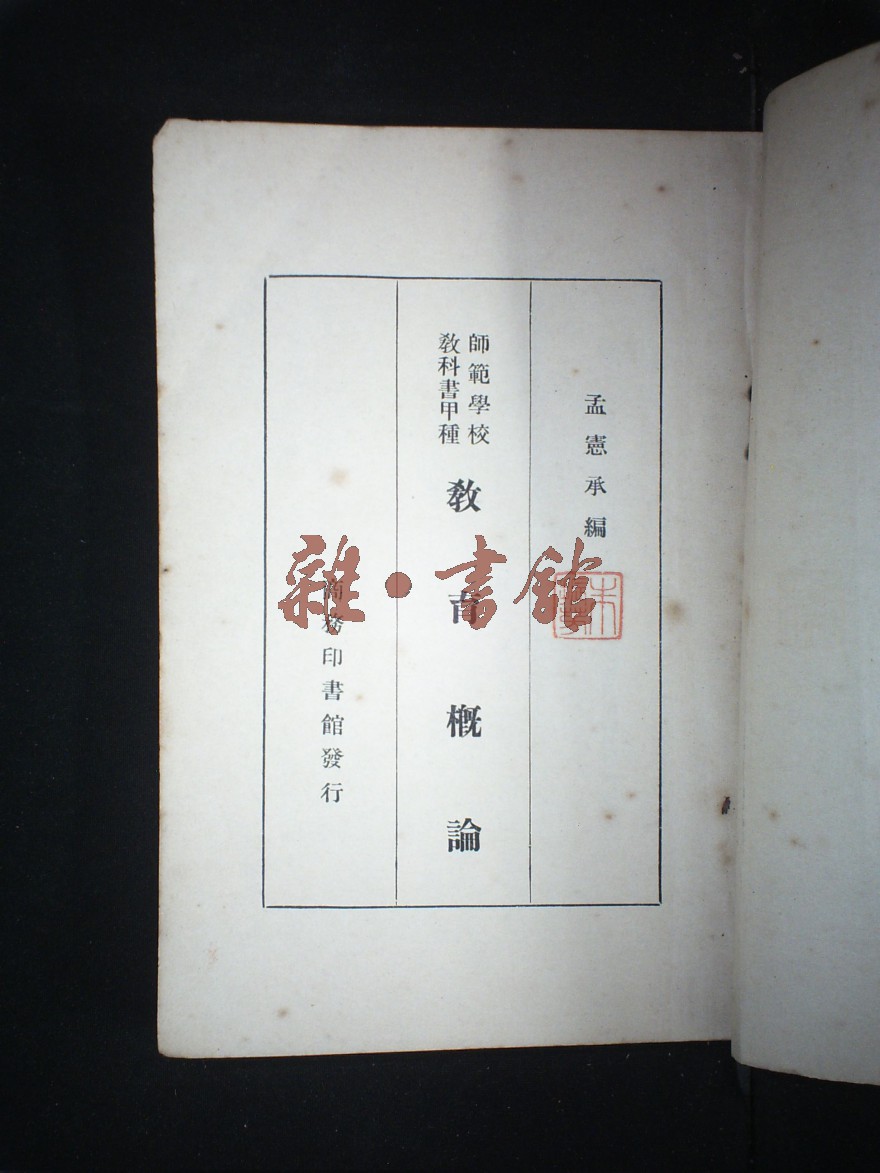 孟憲承編
師範學校
敎科書甲種
敎育槪論
商務印書館發行
雜·書館